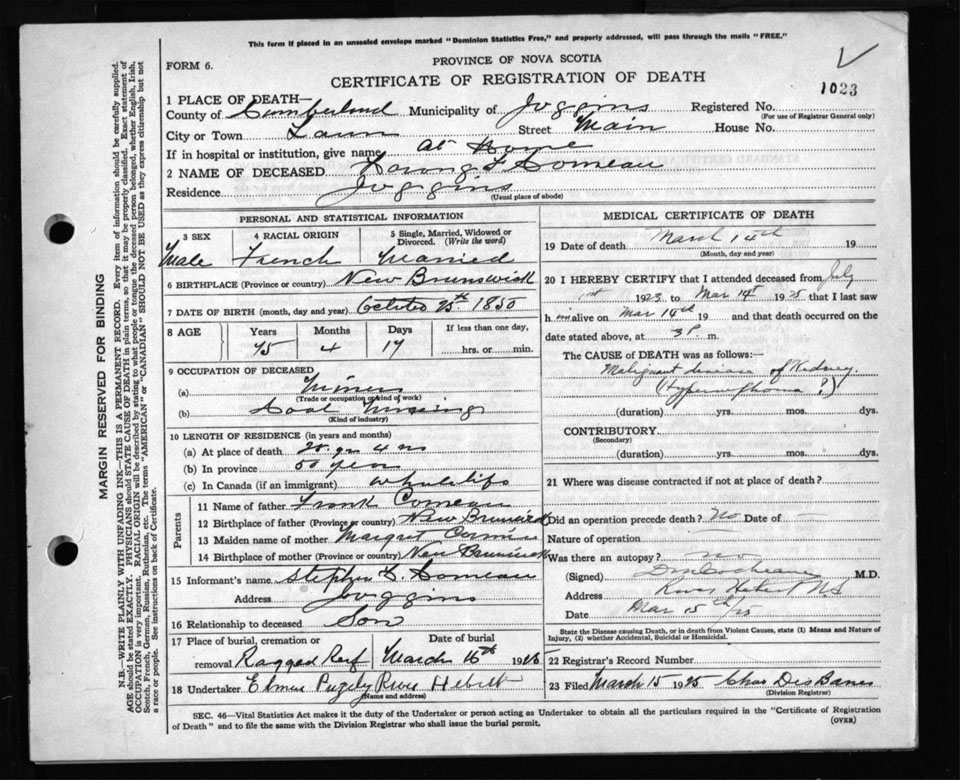 This form if placed in an unsealed envelope marked "Dominion Statistics Free," and properly addressed, will pass through the mails "FREE."
FORM 6.
PROVINCE OF NOVA SCOTIA
CERTIFICATE OF REGISTRATION OF DEATH
1023
1 PLACE OF DEATH—
County of Cumberland Municipality of Joggins Registered No.
(For use of Registrar General only)
City or Town Town Street Main House No.
If in hospital or institution, give name At Home
2 NAME OF DECEASED F Comeau
Residence Joggins
(Usual place of abode)
PERSONAL AND STATISTICAL INFORMATION
3 SEX 4 RACIAL ORIGIN 5 Single, Married, Widowed or Divorced. (Write the word)
Male French Married
6 BIRTHPLACE (Province or country) New Brunswick
7 DATE OF BIRTH (month, day and year) 25th 1850
8 AGE Years Months Days If less than one day,
75 4 17 hrs. or min.
9 OCCUPATION OF DECEASED
(a) Miner
(Trade or occupation or kind of work)
(b) Coal Mining
(Kind of industry)
10 LENGTH OF RESIDENCE (in years and months)
(a) At place of death 4 m
(b) In province 50 years
(c) In Canada (if an immigrant) whole life
Parents
11 Name of father Frank Comeau
12 Birthplace of father (Province or country) New Brunswick
13 Maiden name of mother Margret
14 Birthplace of mother (Province or country) New Brunswick
15 Informant's name Stephen Comeau
Address Joggins
16 Relationship to deceased Son
17 Place of burial, cremation or removal Ragged Reef Date of burial March 16th 1925
18 Undertaker Elmer Pugsly River Hebert
(Name and address)
MEDICAL CERTIFICATE OF DEATH
19 Date of death March 14th 19
(Month, day and year)
20 I HEREBY CERTIFY that I attended deceased from July
1st 1923 to Mar 14th 1925 that I last saw
h im alive on Mar 14th 19 and that death occurred on the
date stated above, at 3 P. m.
The CAUSE of DEATH was as follows:—
Malignant disease of Kidney.
(Hypernephroma ?)
(duration) yrs. mos. dys.
CONTRIBUTORY
(Secondary)
(duration) yrs. mos. dys.
21 Where was disease contracted if not at place of death?
Did an operation precede death? No Date of
Nature of operation
Was there an autopsy? no
(Signed) Cochrane M.D.
Address River Hebert NS
Date Mar 15th/25
State the Disease causing Death, or in death from Violent Causes, state (1) Means and Nature of Injury, (2) whether Accidental, Suicidal or Homicidal.
22 Registrar's Record Number
23 Filed March 15 1925 Chas DesBarres
(Division Registrar)
SEC. 46—Vital Statistics Act makes it the duty of the Undertaker or person acting as Undertaker to obtain all the particulars required in the "Certificate of Registration
of Death" and to file the same with the Division Registrar who shall issue the burial permit.
(OVER)
MARGIN RESERVED FOR BINDING
N.B.—WRITE PLAINLY WITH UNFADING INK—THIS IS A PERMANENT RECORD. Every item of information should be carefully supplied.
AGE should be stated EXACTLY. PHYSICIANS should STATE CAUSE OF DEATH in plain terms, so that it may be properly classified. Exact statement of
OCCUPATION is very important. RACIAL ORIGIN will be described by stating to what people or tongue the deceased person belonged, whether English, Irish,
Scotch, French, German, Russian, Ruthenian, etc. The terms "AMERICAN" or "CANADIAN" SHOULD NOT BE USED as they express citizenship but not
a race or people. See instructions on back of Certificate.